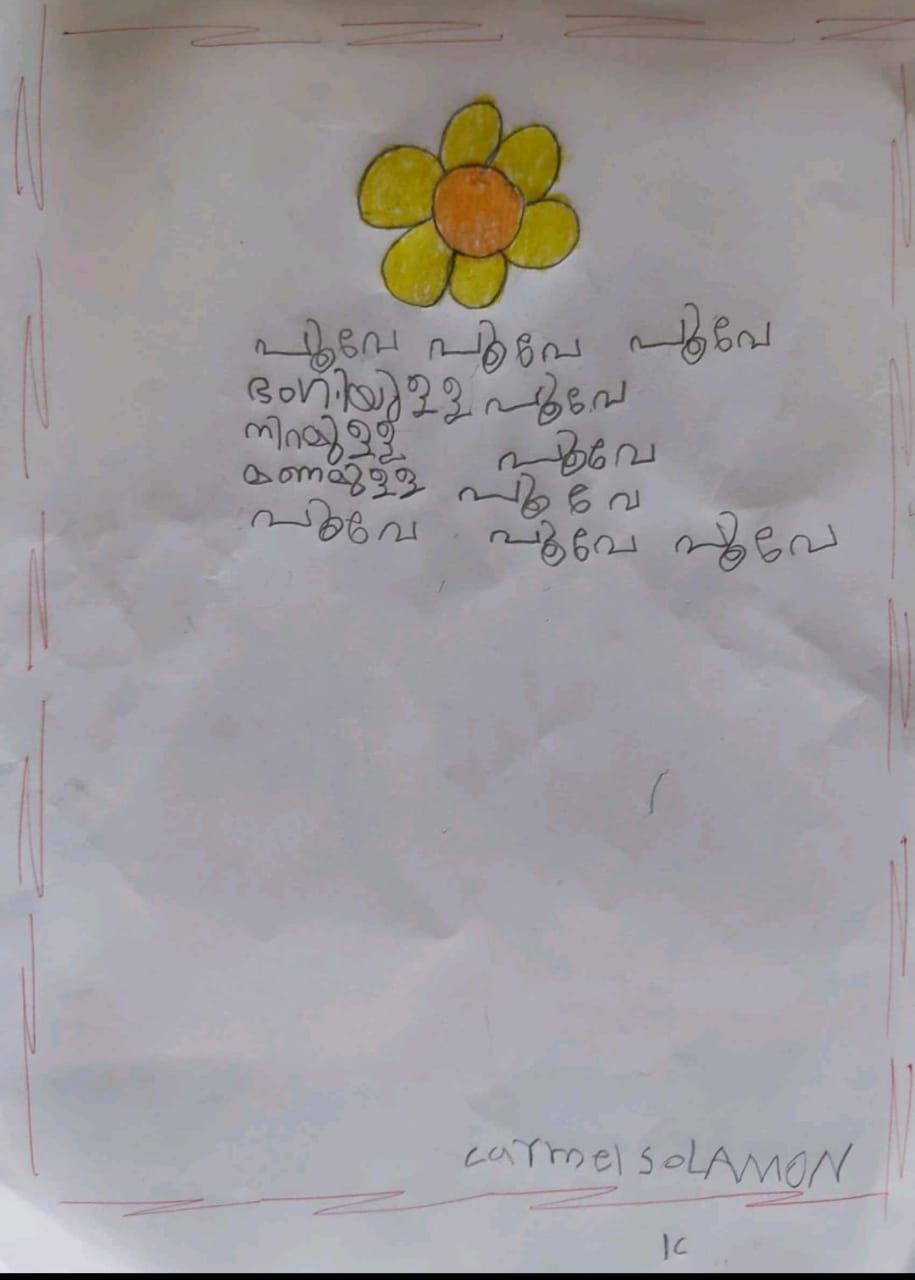 പൂവേ പൂവേ പൂവേ
ഭംഗിയുള്ള പൂവേ
നിറമുള്ള പൂവേ
മണമുള്ള പൂവേ
പൂവേ പൂവേ പൂവേ
carmel soLAMON
1c